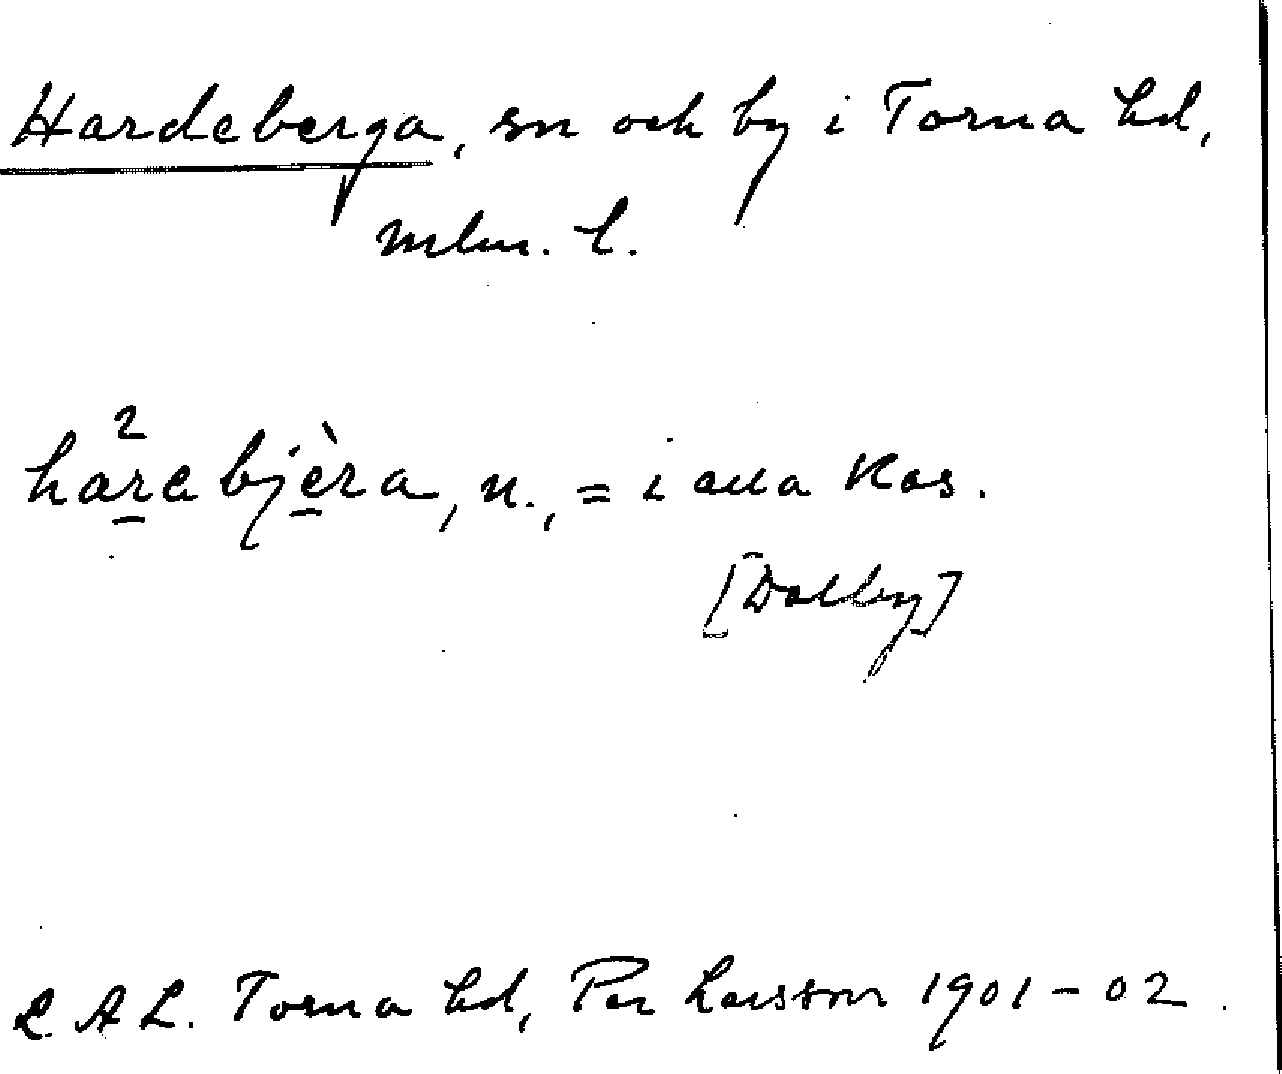 Hardeberga, sn och by i Torna hd,
Mlm. l.
harebjèra, n., = i alla kas.
[Dalby]
L. A L. Torna hd, Per Larsson 1901-02.